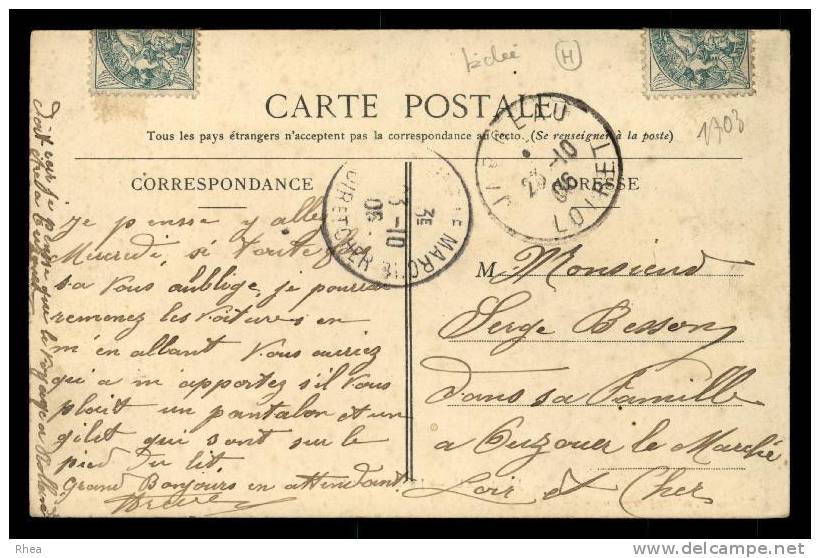 1903
CARTE POSTALE
Tous les pays étrangers n'acceptent pas la correspondance au recto. (Se renseigner à la poste)
CORRESPONDANCE
ADRESSE
JARGEAU
LOIRET
23-10
06
LE MARCHÉ
LOIR ET CHER
3E
23-10
06
Je pense y aller
Mercredi, si toutefois
sa vous aublige, je pourrai
remenez les voitures en
m'en allant vous auriez
qu'a m'apportez s'il vous
plait un pantalon et un
gilet qui sont sur le
pied du lit.
Grand Bonjours en attendant
M Monsieur
Serge Besson
dans sa Famille
a Ouzouer le Marché
Loir et Cher
car je pense que le voyage a
Rhea
delcampe.net